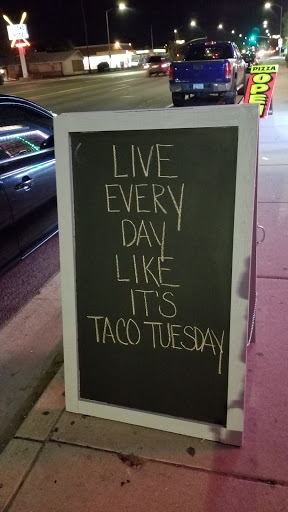 PIZZA
OPEN
LIVE
EVERY
DAY
LIKE
IT'S
TACO TUESDAY